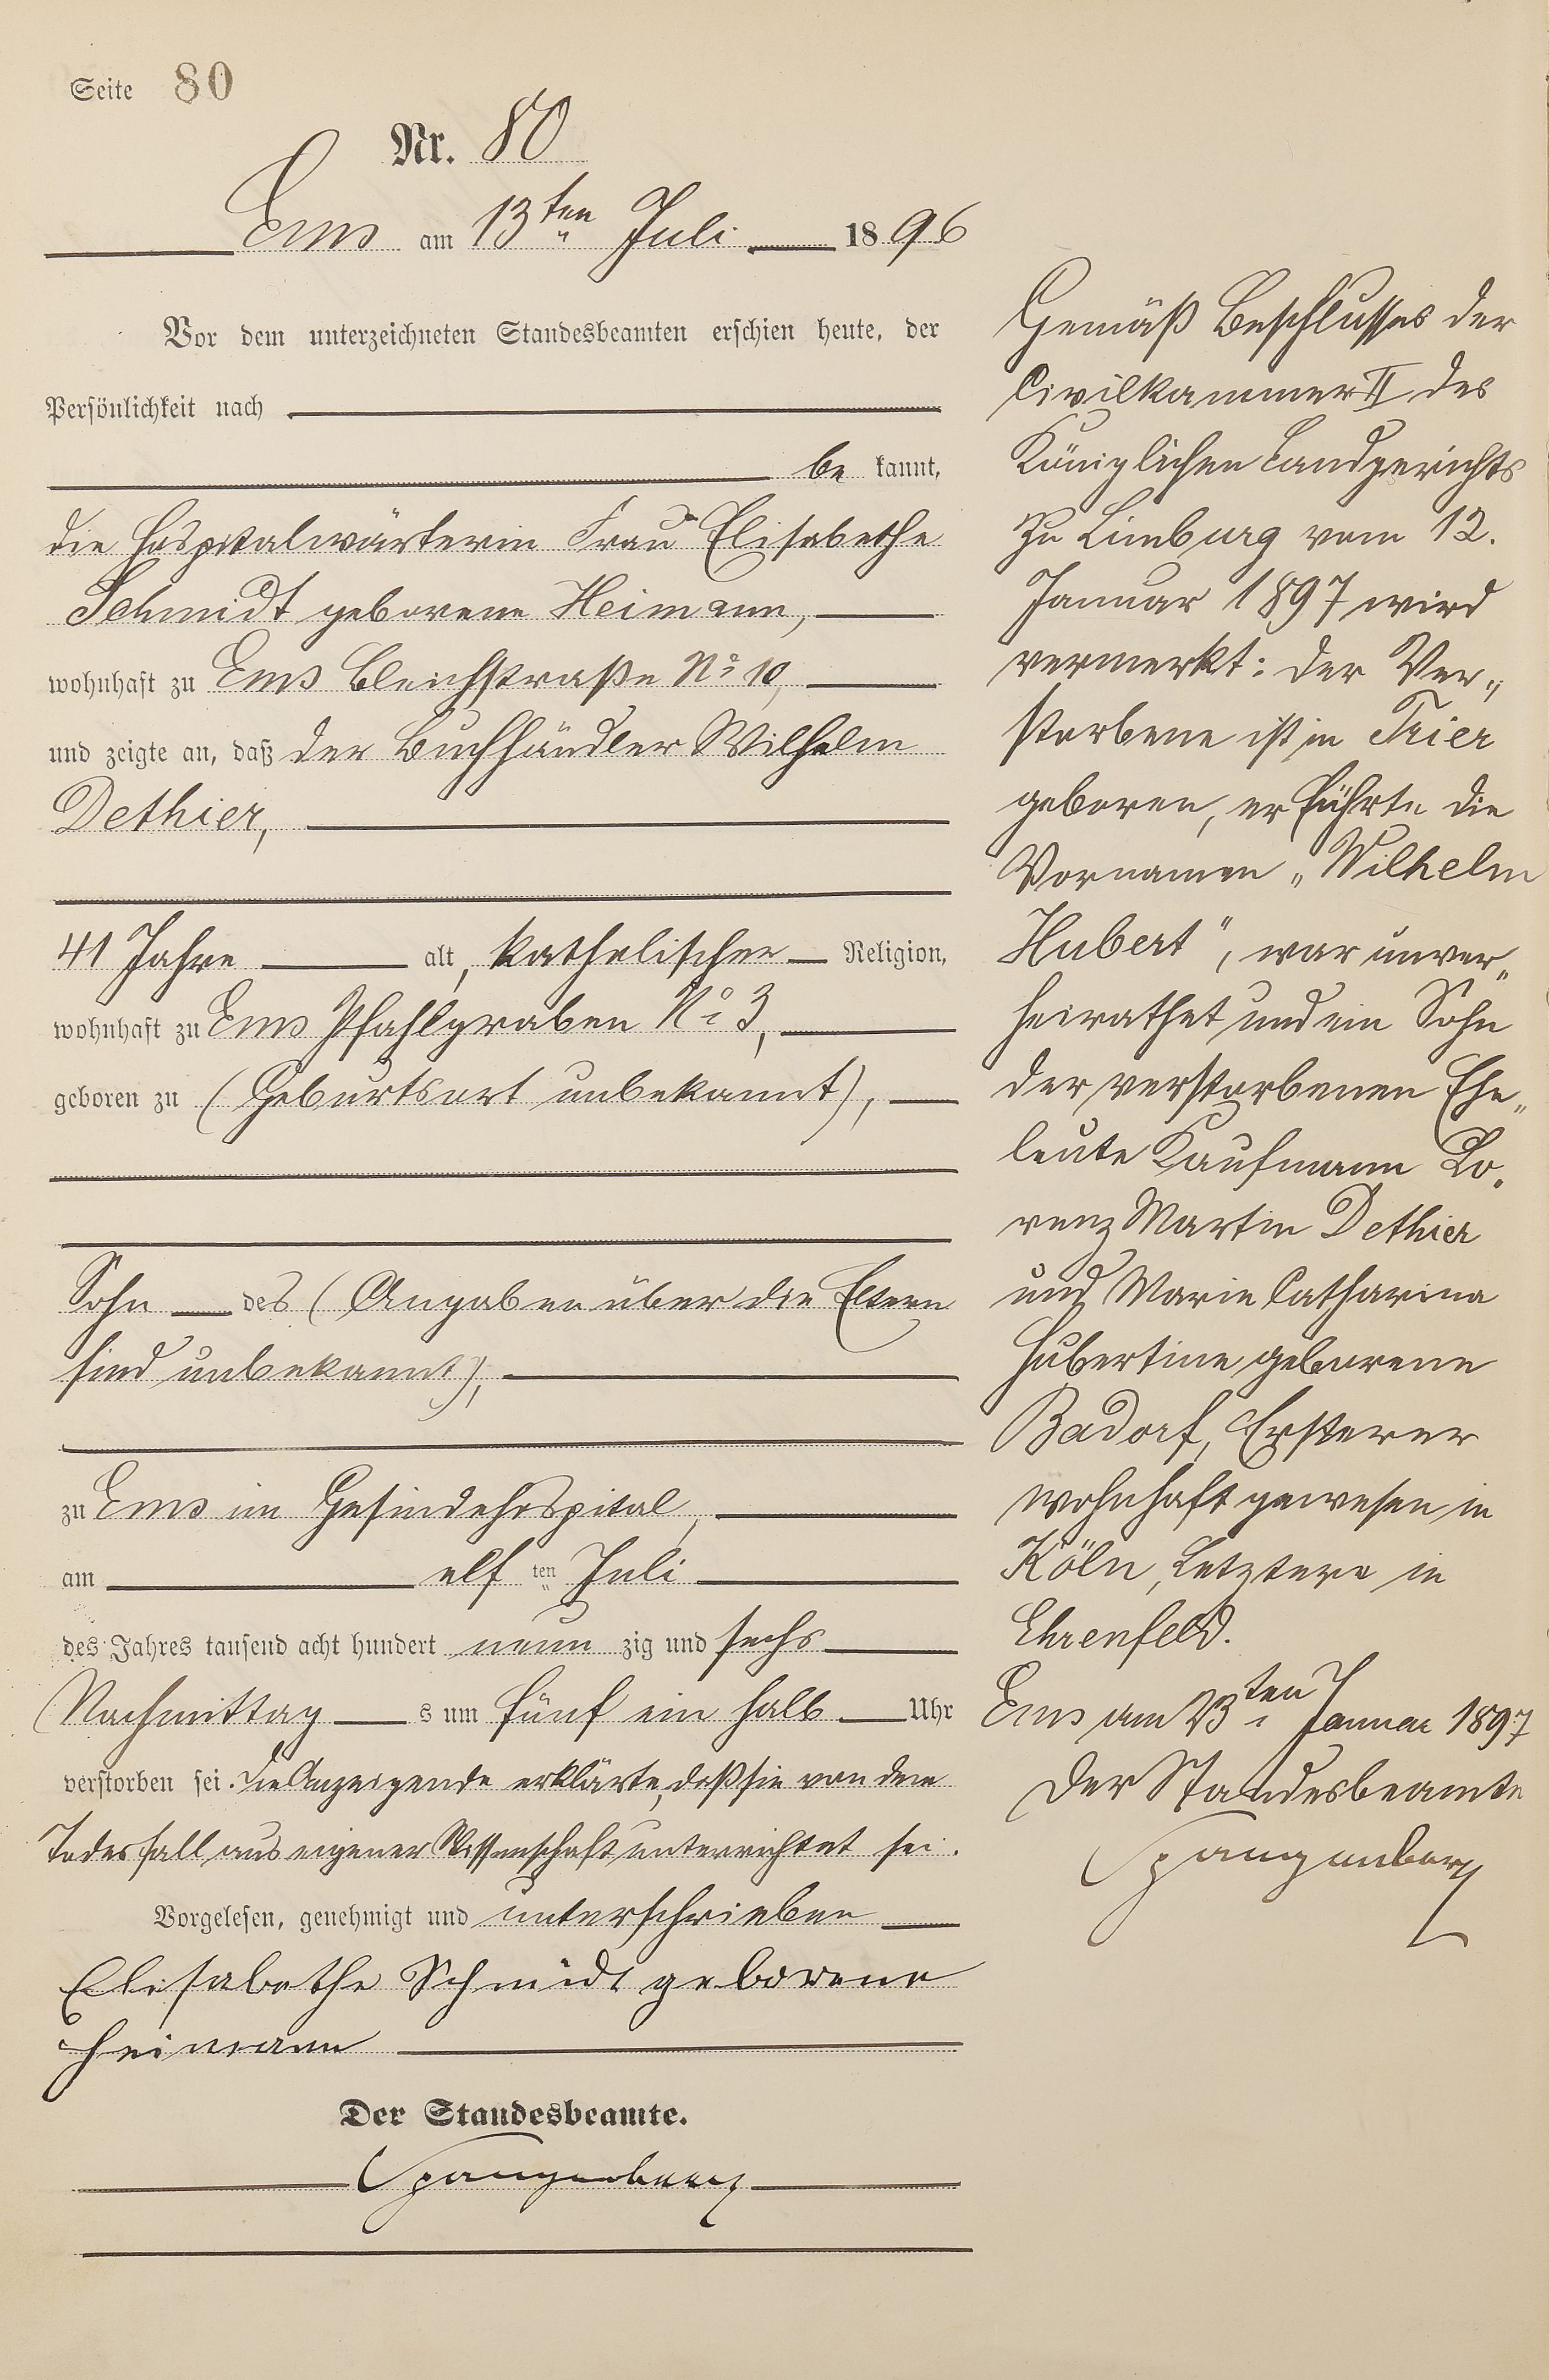 Seite 80
Nr. 80
Ems am 13ten Juli 1896
Vor dem unterzeichneten Standesbeamten erschien heute, der
Persönlichkeit nach
be kannt,
die Hospitalwärterin Frau Elisabethe
Schmidt geborene Heimann,
wohnhaft zu Ems Bleichstraße No 10,
und zeigte an, daß der Buchhändler Wilhelm
Dethier,
41 Jahre alt, katholischer Religion,
wohnhaft zu Ems Pfahlgraben No 3,
geboren zu (Geburtsort unbekannt),
Sohn des (Angaben über die Eltern
sind unbekannt),
zu Ems im Gesindehospital,
am elf ten Juli
des Jahres tausend acht hundert neun zig und sechs
Nachmittag s um fünf ein halb Uhr
verstorben sei. Die Anzeigende erklärte, daß sie von dem
Todesfall aus eigener Wissenschaft unterrichtet sei.
Vorgelesen, genehmigt und unterschrieben
Elisabethe Schmidt geborene
Heimann
Der Standesbeamte.
Spangenberg
Gemäß Beschlusses der
Civilkammer II des
Königlichen Landgerichts
zu Limburg vom 12.
Januar 1897 wird
vermerkt: der Ver„
storbene ist in Trier
geboren, er führte die
Vornamen „Wilhelm
Hubert", war unver„
heirathet und ein Sohn
der verstorbenen Ehe„
leute Kaufmann Lo„
renz Martin Dethier
und Marie Catharina
Hubertine geborene
Badorf, Ersterer
wohnhaft gewesen in
Köln, Letztere in
Ehrenfeld.
Ems am 23ten Januar 1897
Der Standesbeamte
Spangenberg